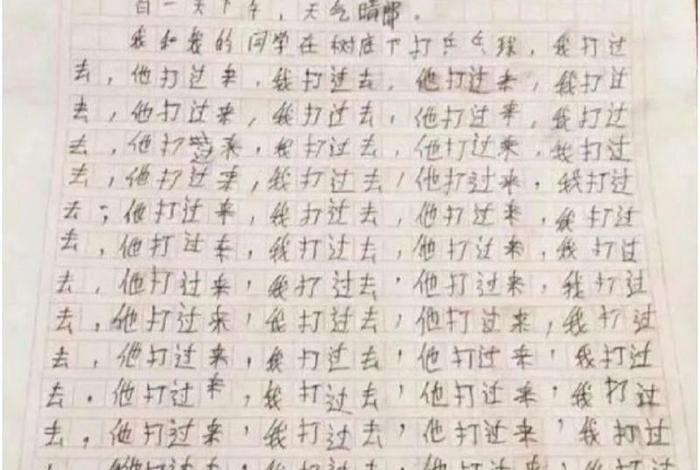 有一天下午，天气晴朗。
我和我的同学在树底下打乒乓球，我打过
去，他打过来，我打过去，他打过来，我打过
去，他打过来，我打过去，他打过来，我打过
去，他打过来，我打过去，他打过来，我打过
去，他打过来，我打过去，他打过来，我打过
去，他打过来，我打过去，他打过来，我打过
去，他打过来，我打过去，他打过来，我打过
去，他打过来，我打过去，他打过来，我打过
去，他打过来，我打过去，他打过来，我打过
去，他打过来，我打过去，他打过来，我打过
去，他打过来，我打过去，他打过来，我打过
去，他打过来，我打过去，他打过来，我打过
去，他打过来，我打过去，他打过来，我打过